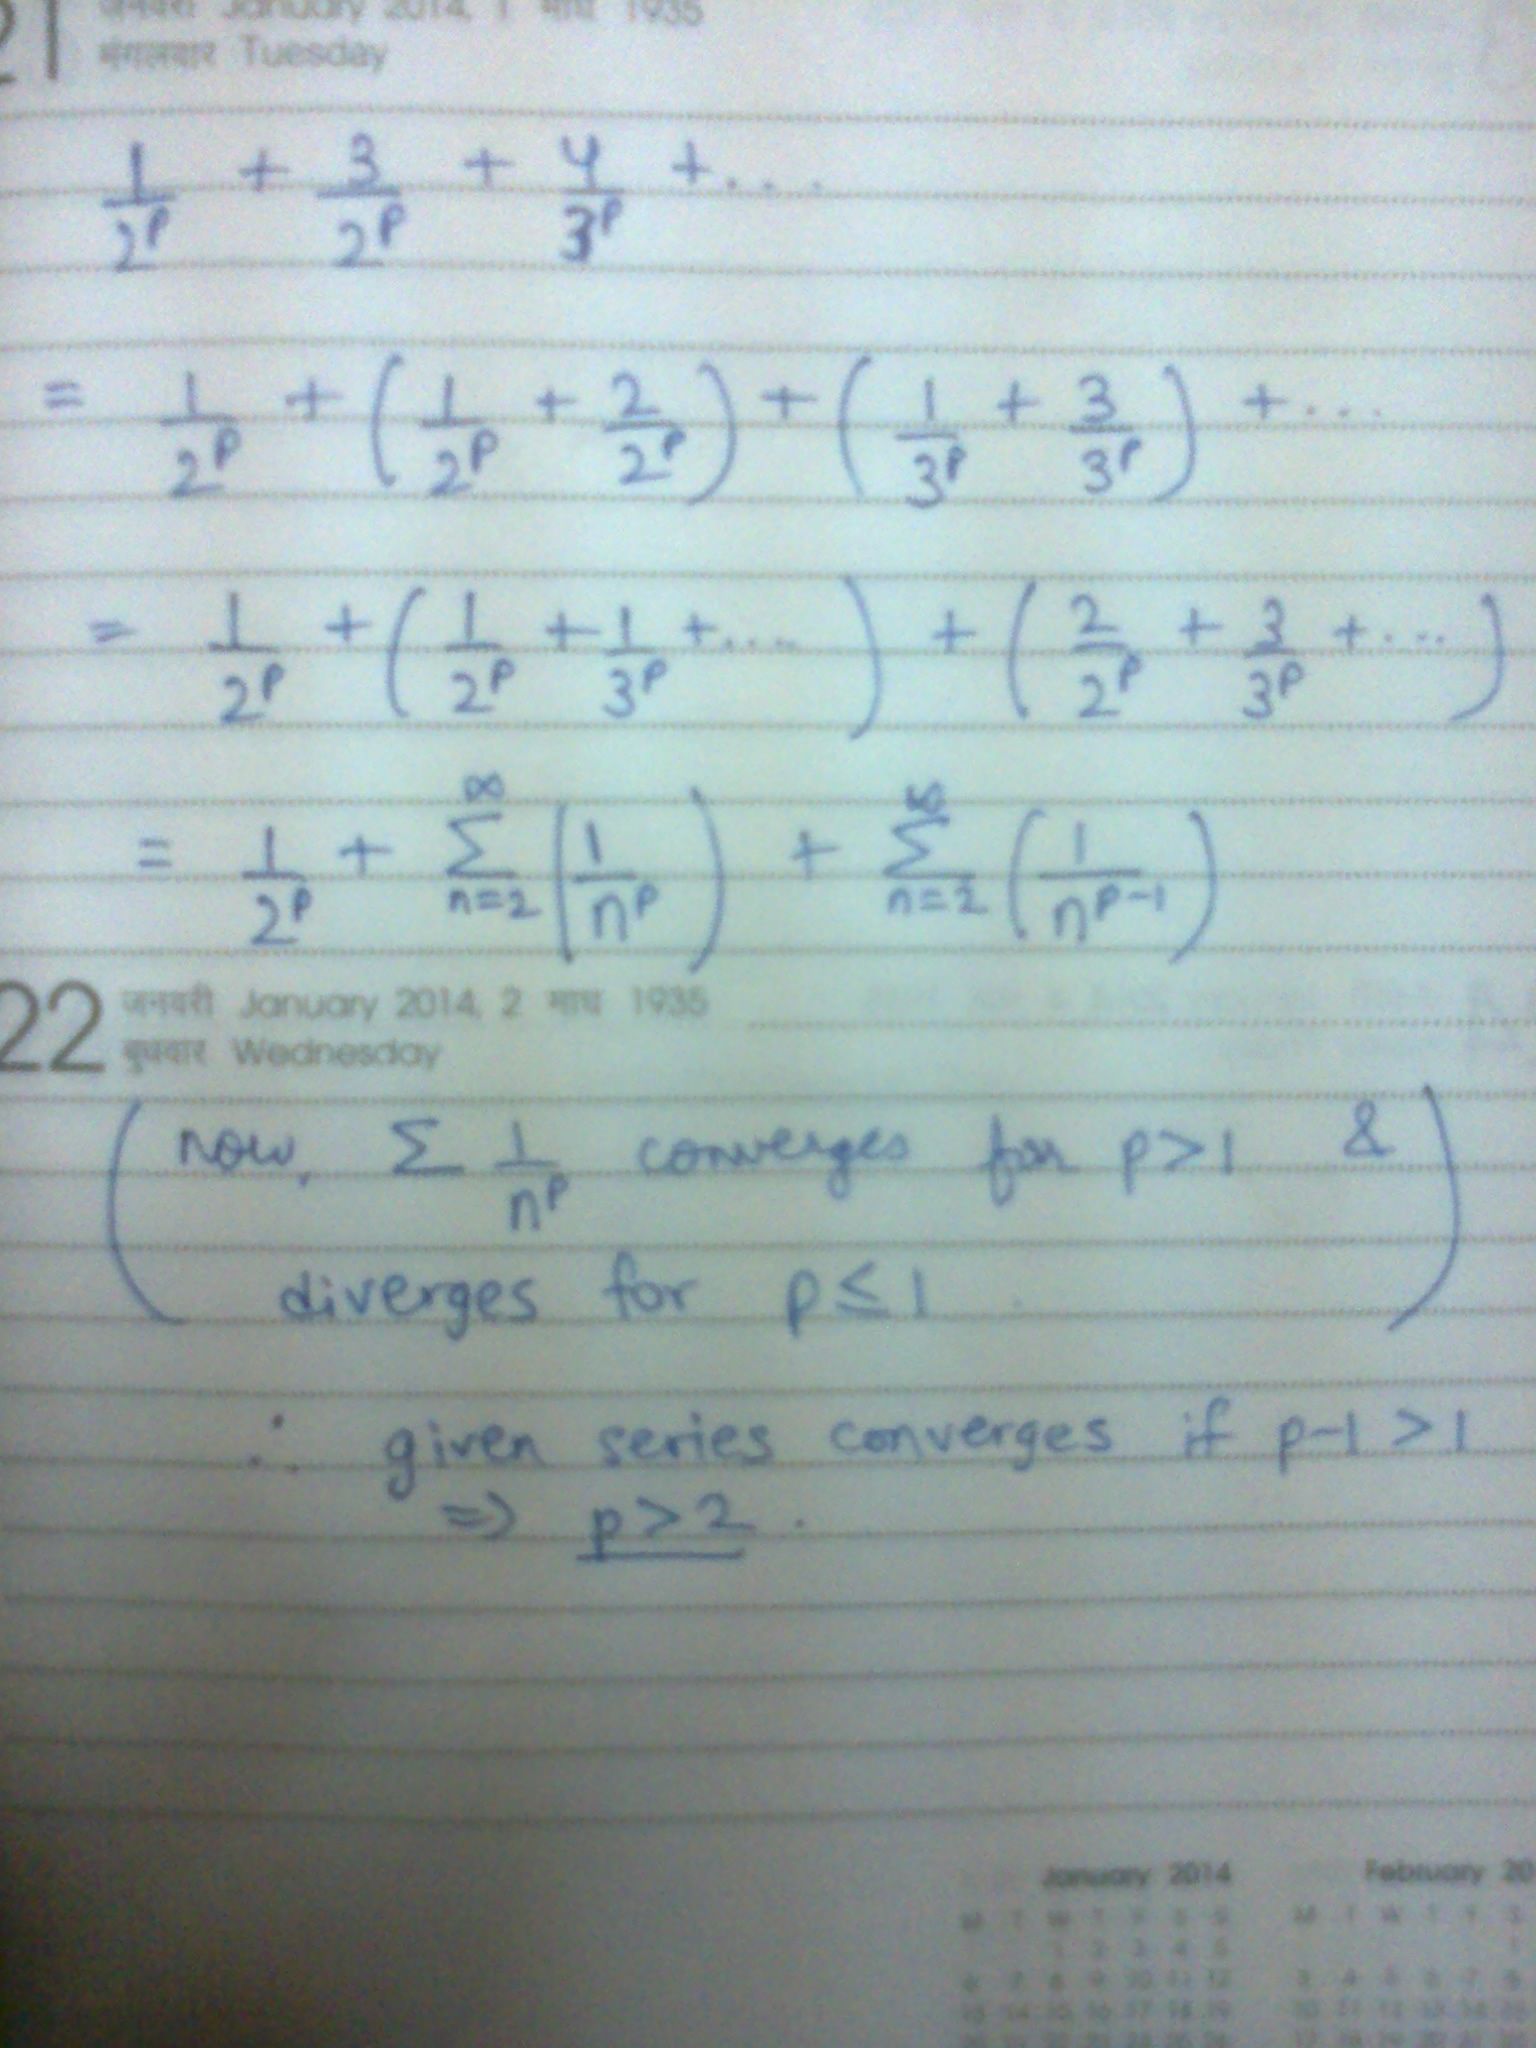 21 जनवरी January 2014, 1 माघ 1935
मंगलवार Tuesday
1/2^p + 3/2^p + 4/3^p + ....
= 1/2^p + (1/2^p + 2/2^p) + (1/3^p + 3/3^p) + ...
= 1/2^p + (1/2^p + 1/3^p + ....) + (2/2^p + 3/3^p + ....)
= 1/2^p + ∞Σn=2 (1/n^p) + ∞Σn=2 (1/n^p-1)
22 जनवरी January 2014, 2 माघ 1935
बुधवार Wednesday
(now, Σ 1/n^p converges for p>1 &
diverges for p≤1)
∴ given series converges if p-1>1
⇒ p>2.
January 2014 February 20
M T W T F S S M T W T F S
1 2 3 4 5 1
6 7 8 9 10 11 12 3 4 5 6 7 8
13 14 15 16 17 18 19 10 11 12 13 14 15